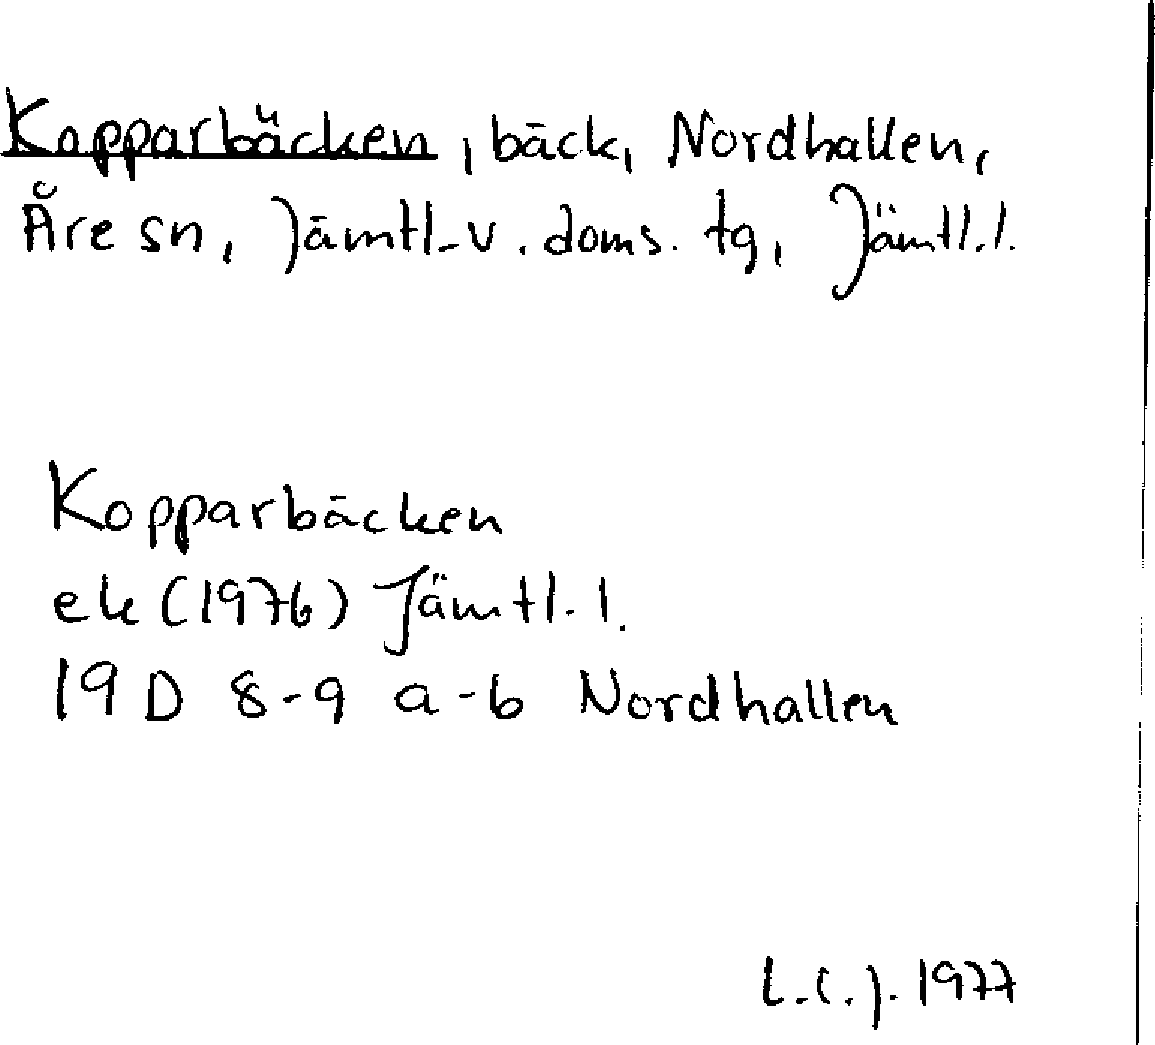 Kopparbäcken, bäck, Nordhallen,
Åre sn, Jämtl-v. doms. tg, Jämtl.l.
Kopparbäcken
ek (1976) Jämtl.l.
19 D 8-9 a-b Nordhallen
L.C.J. 1977